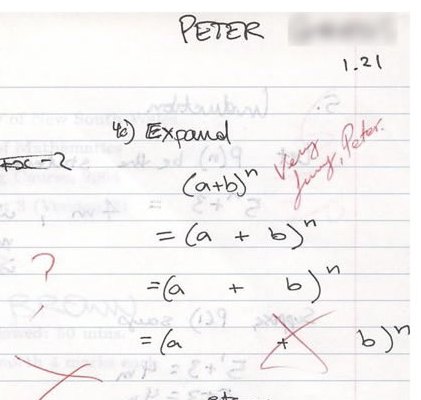 PETER
1.21
4c) Expand
(a+b)ⁿ
Very funny, Peter.
= (a + b)ⁿ
?
=(a + b)ⁿ
=(a + b)ⁿ
etc...